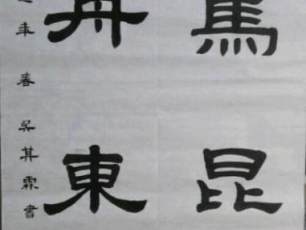 馬昆
舟東
年春吳其霖書